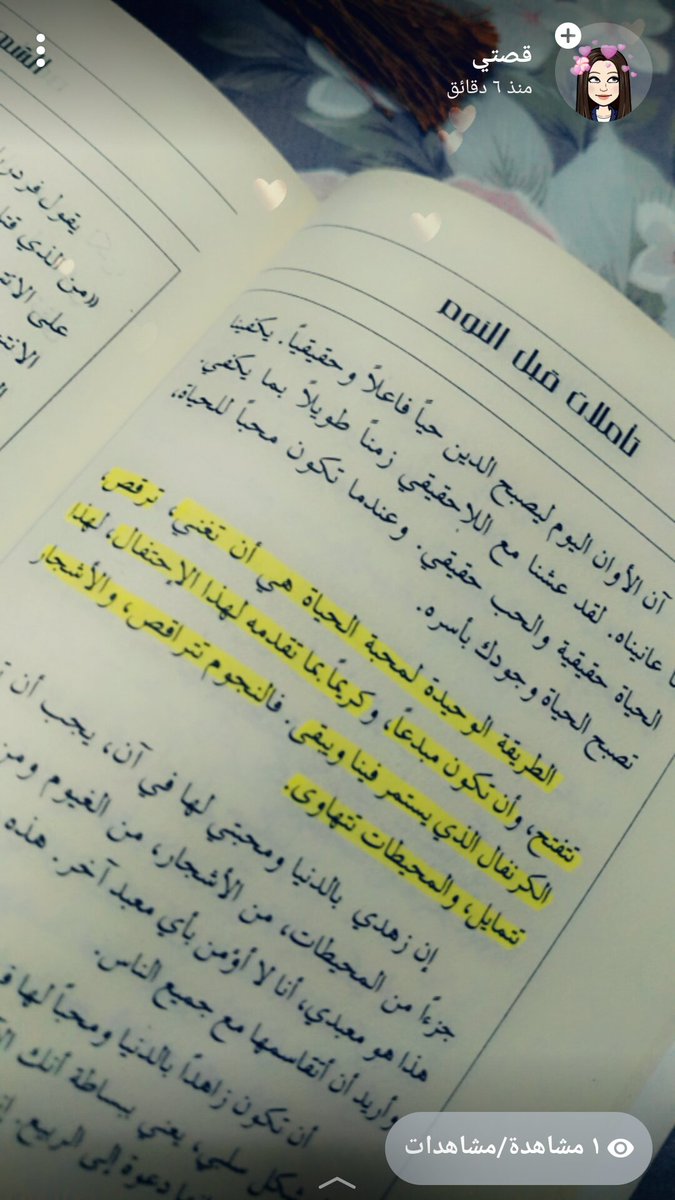 قصتي
منذ ٦ دقائق
يقول
«من الذي
على
تأملات قبل النوم
آن الأوان اليوم ليصبح الدين حياً فاعلاً وحقيقياً. يكفينا
ما عانيناه. لقد عشنا مع اللاحقيقي زمناً طويلاً بما يكفي.
الحياة حقيقية والحب حقيقي. وعندما تكون محباً للحياة،
تصبح الحياة وجودك بأسره.
الطريقة الوحيدة لمحبة الحياة هي أن تغني، ترقص،
تتفتح، وأن تكون مبدعاً، و كريماً بما تقدمه لهذا الإحتفال، لهذا
الكرنفال الذي يستمر فينا ويبقى. فالنجوم تتراقص، والأشجار
تتمايل، والمحيطات تتهاوى.
إن زهدي بالدنيا ومحبتي لها في آن، يجب أن
جزءاً من المحيطات، من الأشجار، من الغيوم ومن
هذا هو معبدي، أنا لا أؤمن بأي معبد آخر. هذه
وأريد أن أتقاسمها مع جميع الناس.
أن تكون زاهداً بالدنيا ومحباً لها
شكل سلبي، يعني ببساطة أنك
دعوة إلى الربيع.
١ مشاهدة/مشاهدات